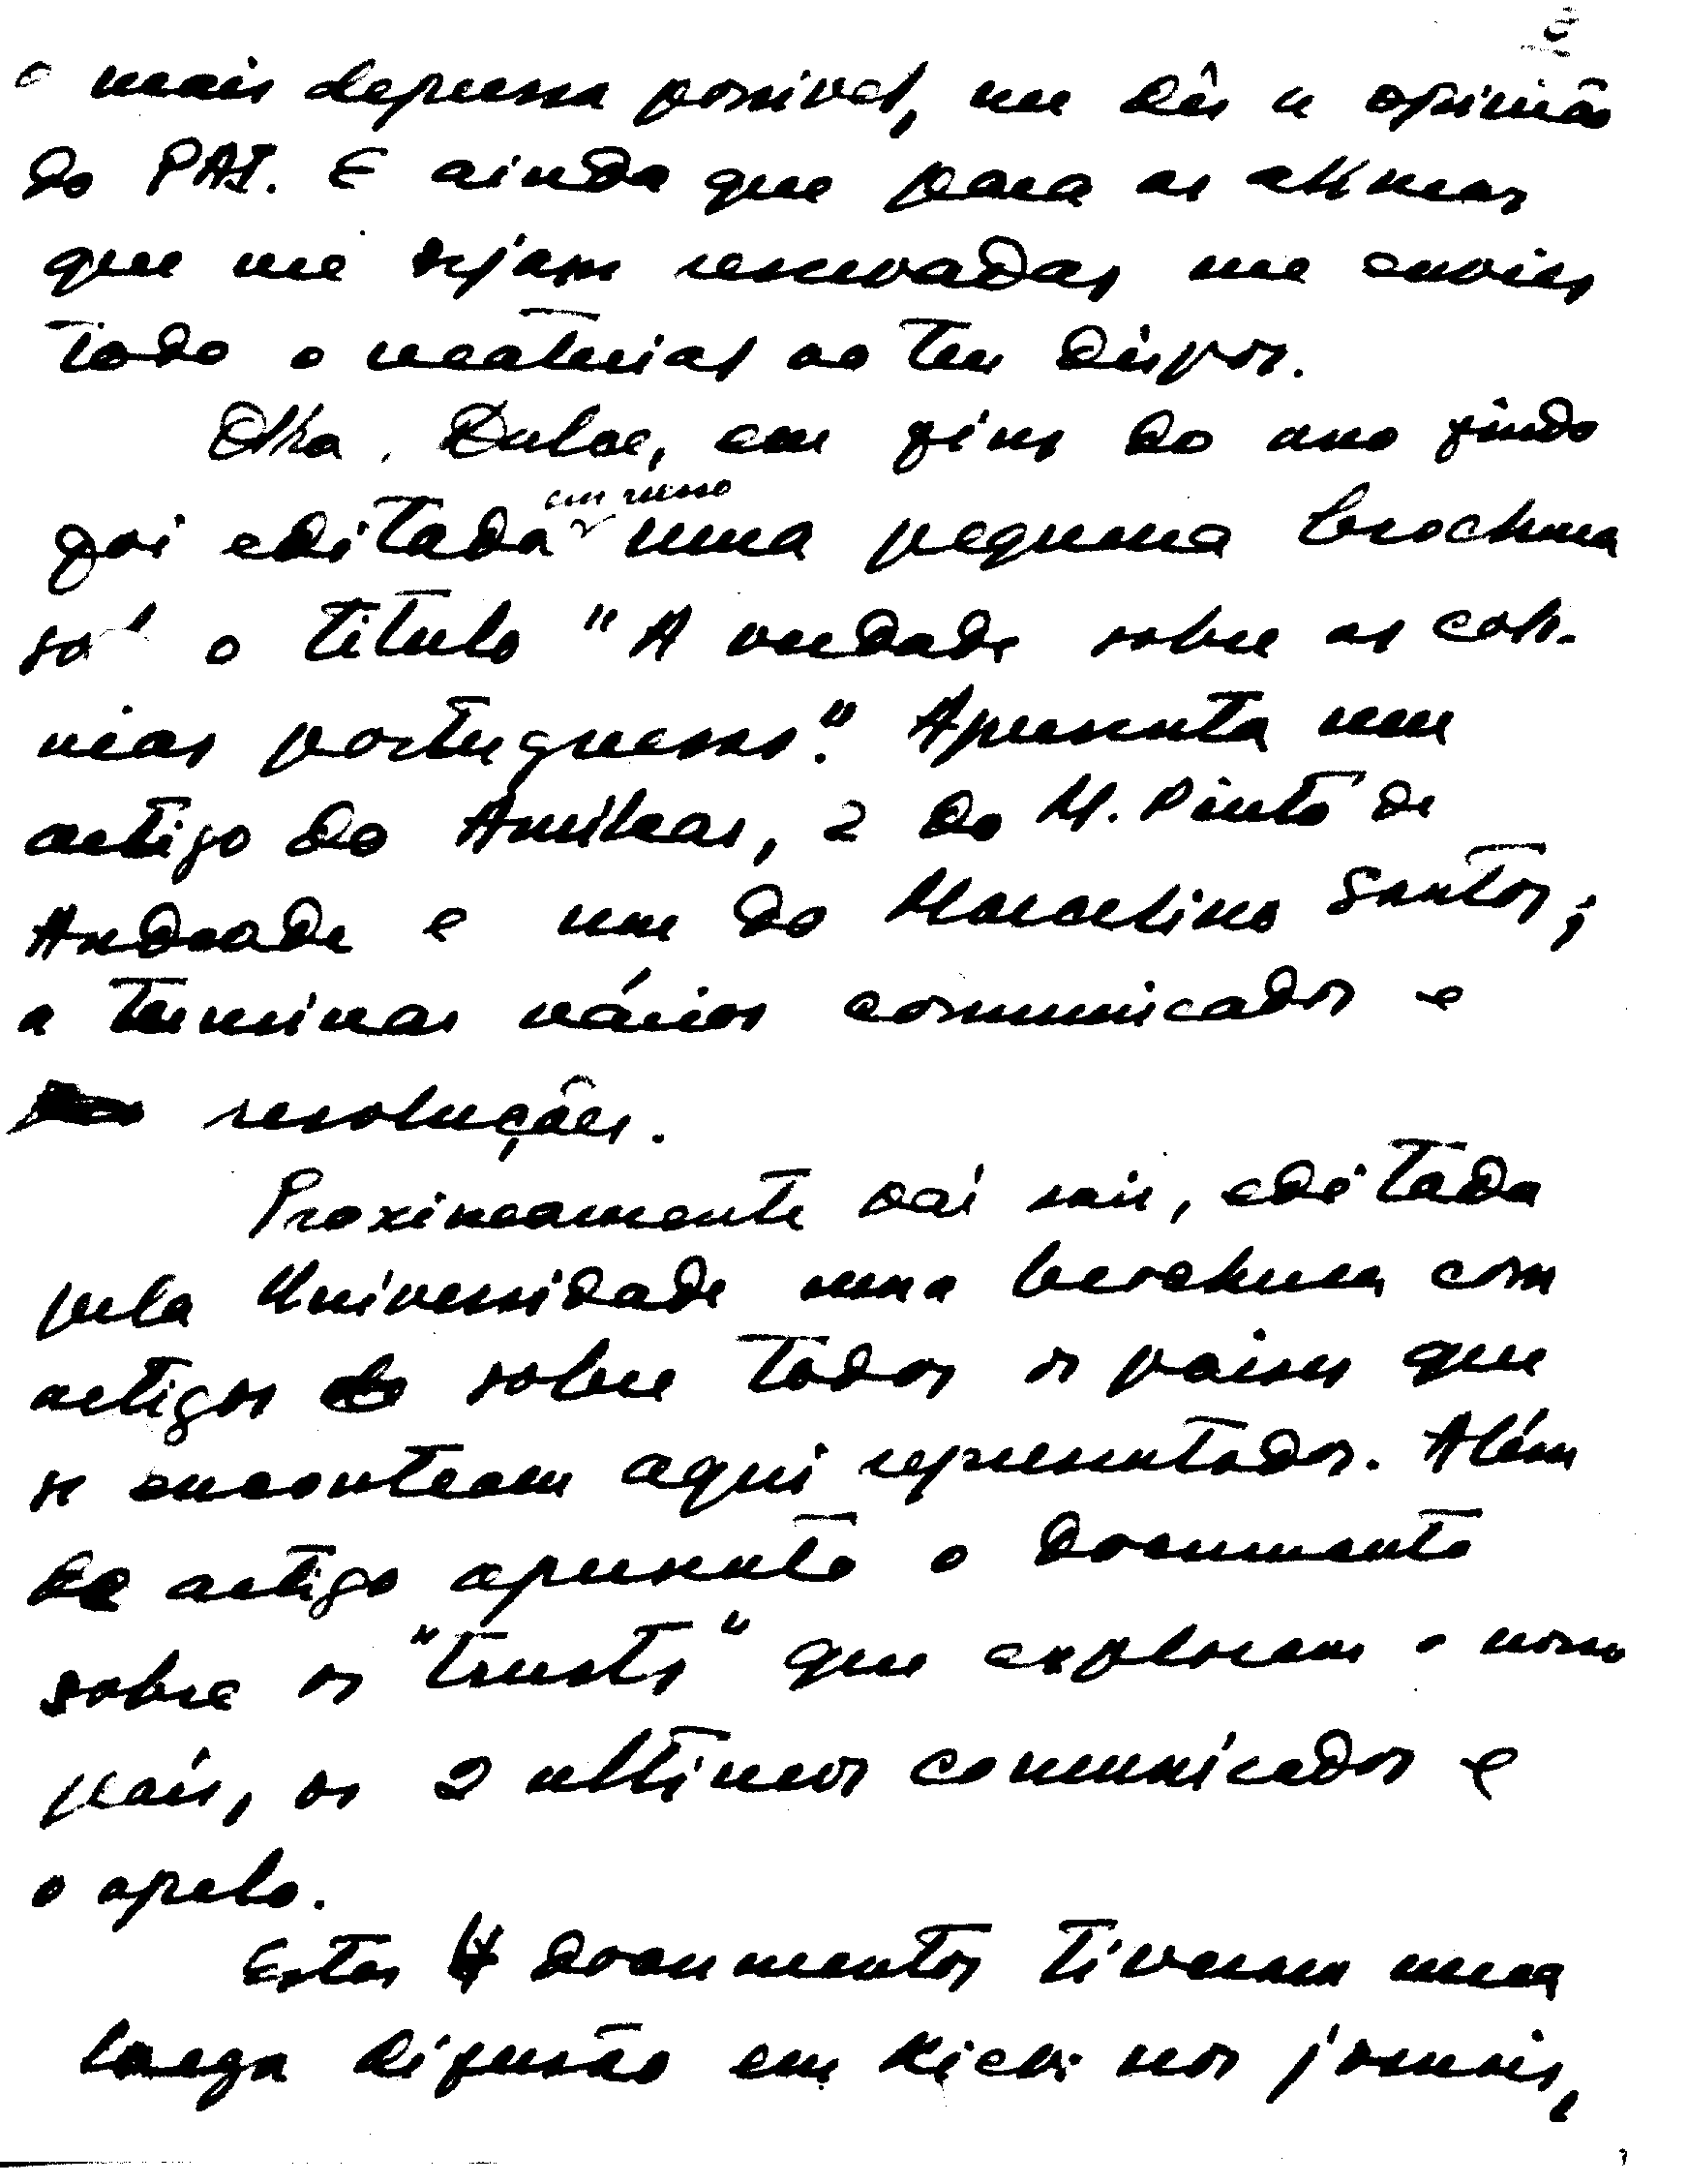 o mais depressa possivel, me dês a opinião
do PAI. E ainda que para as alturas
que me sejam reservadas me envies
todo o material ao teu dispor.
Olha, Dulce, em fins do ano findo
foi editada em russo uma pequena brochura
só o titulo "A verdade sobre as coló-
nias portuguesas". Apresenta um
artigo do Amilcar, 2 do M. Pinto de
Andrade e um do Marcelino Santos;
a terminar vários comunicados e
resoluções.
Proximamente vai sair, editada
pela Universidade uma brochura com
artigos sobre todos os paises que
se encontram aqui representados. Além
do artigo apresento o documento
sobre os "trusts" que exploram o nosso
país, os 2 ultimos comunicados e
o apelo.
Estes 4 documentos tiveram uma
larga difusão em Kiev: nos jornais,